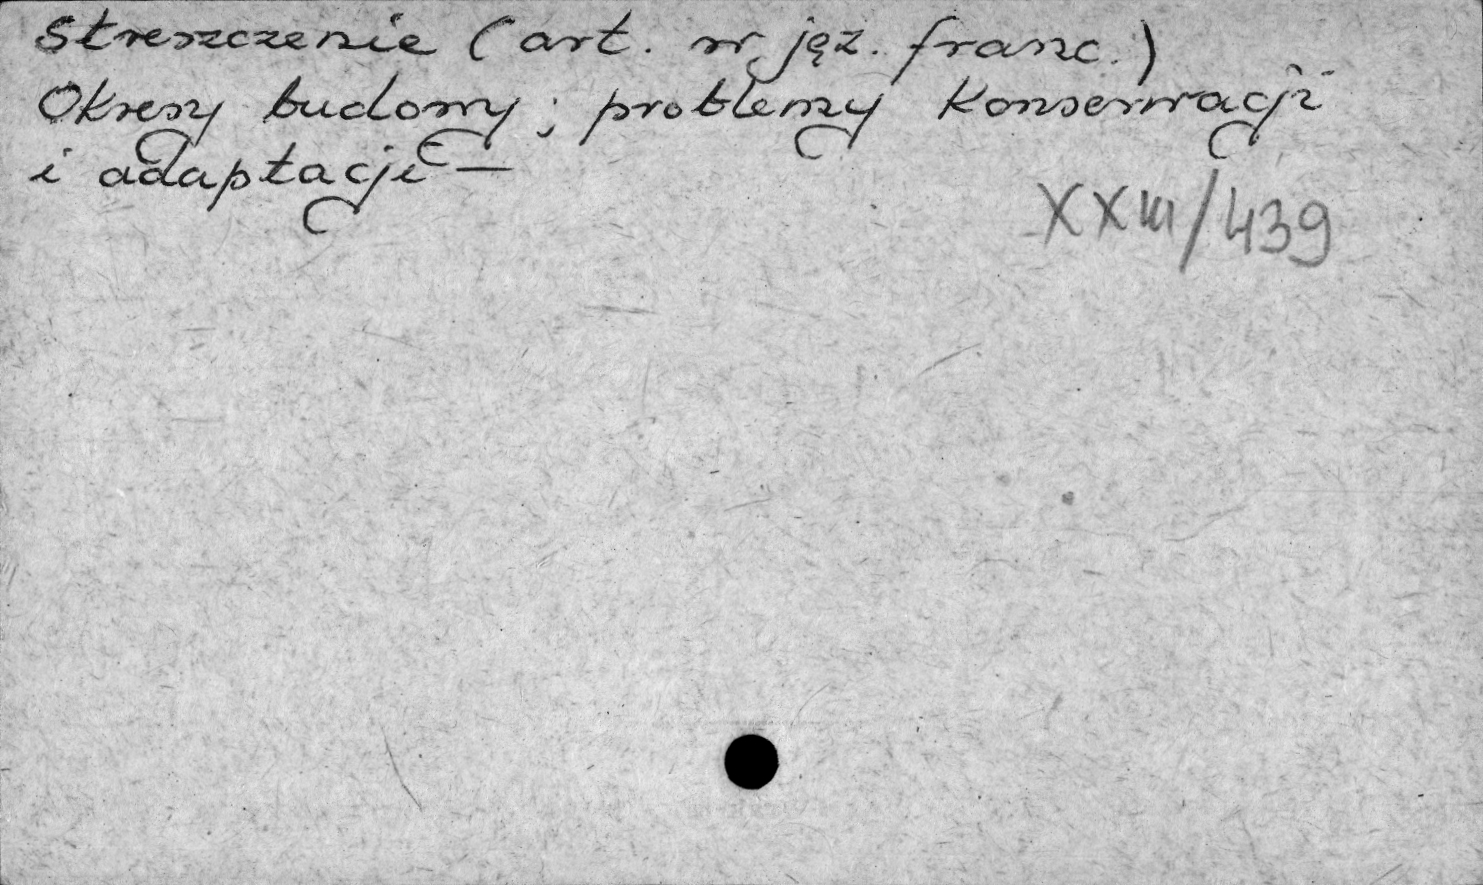 Streszczenie (art. w jęz. franc.)
Okresy budowy; problemy konserwacji
i adaptacji –
XXIII/439